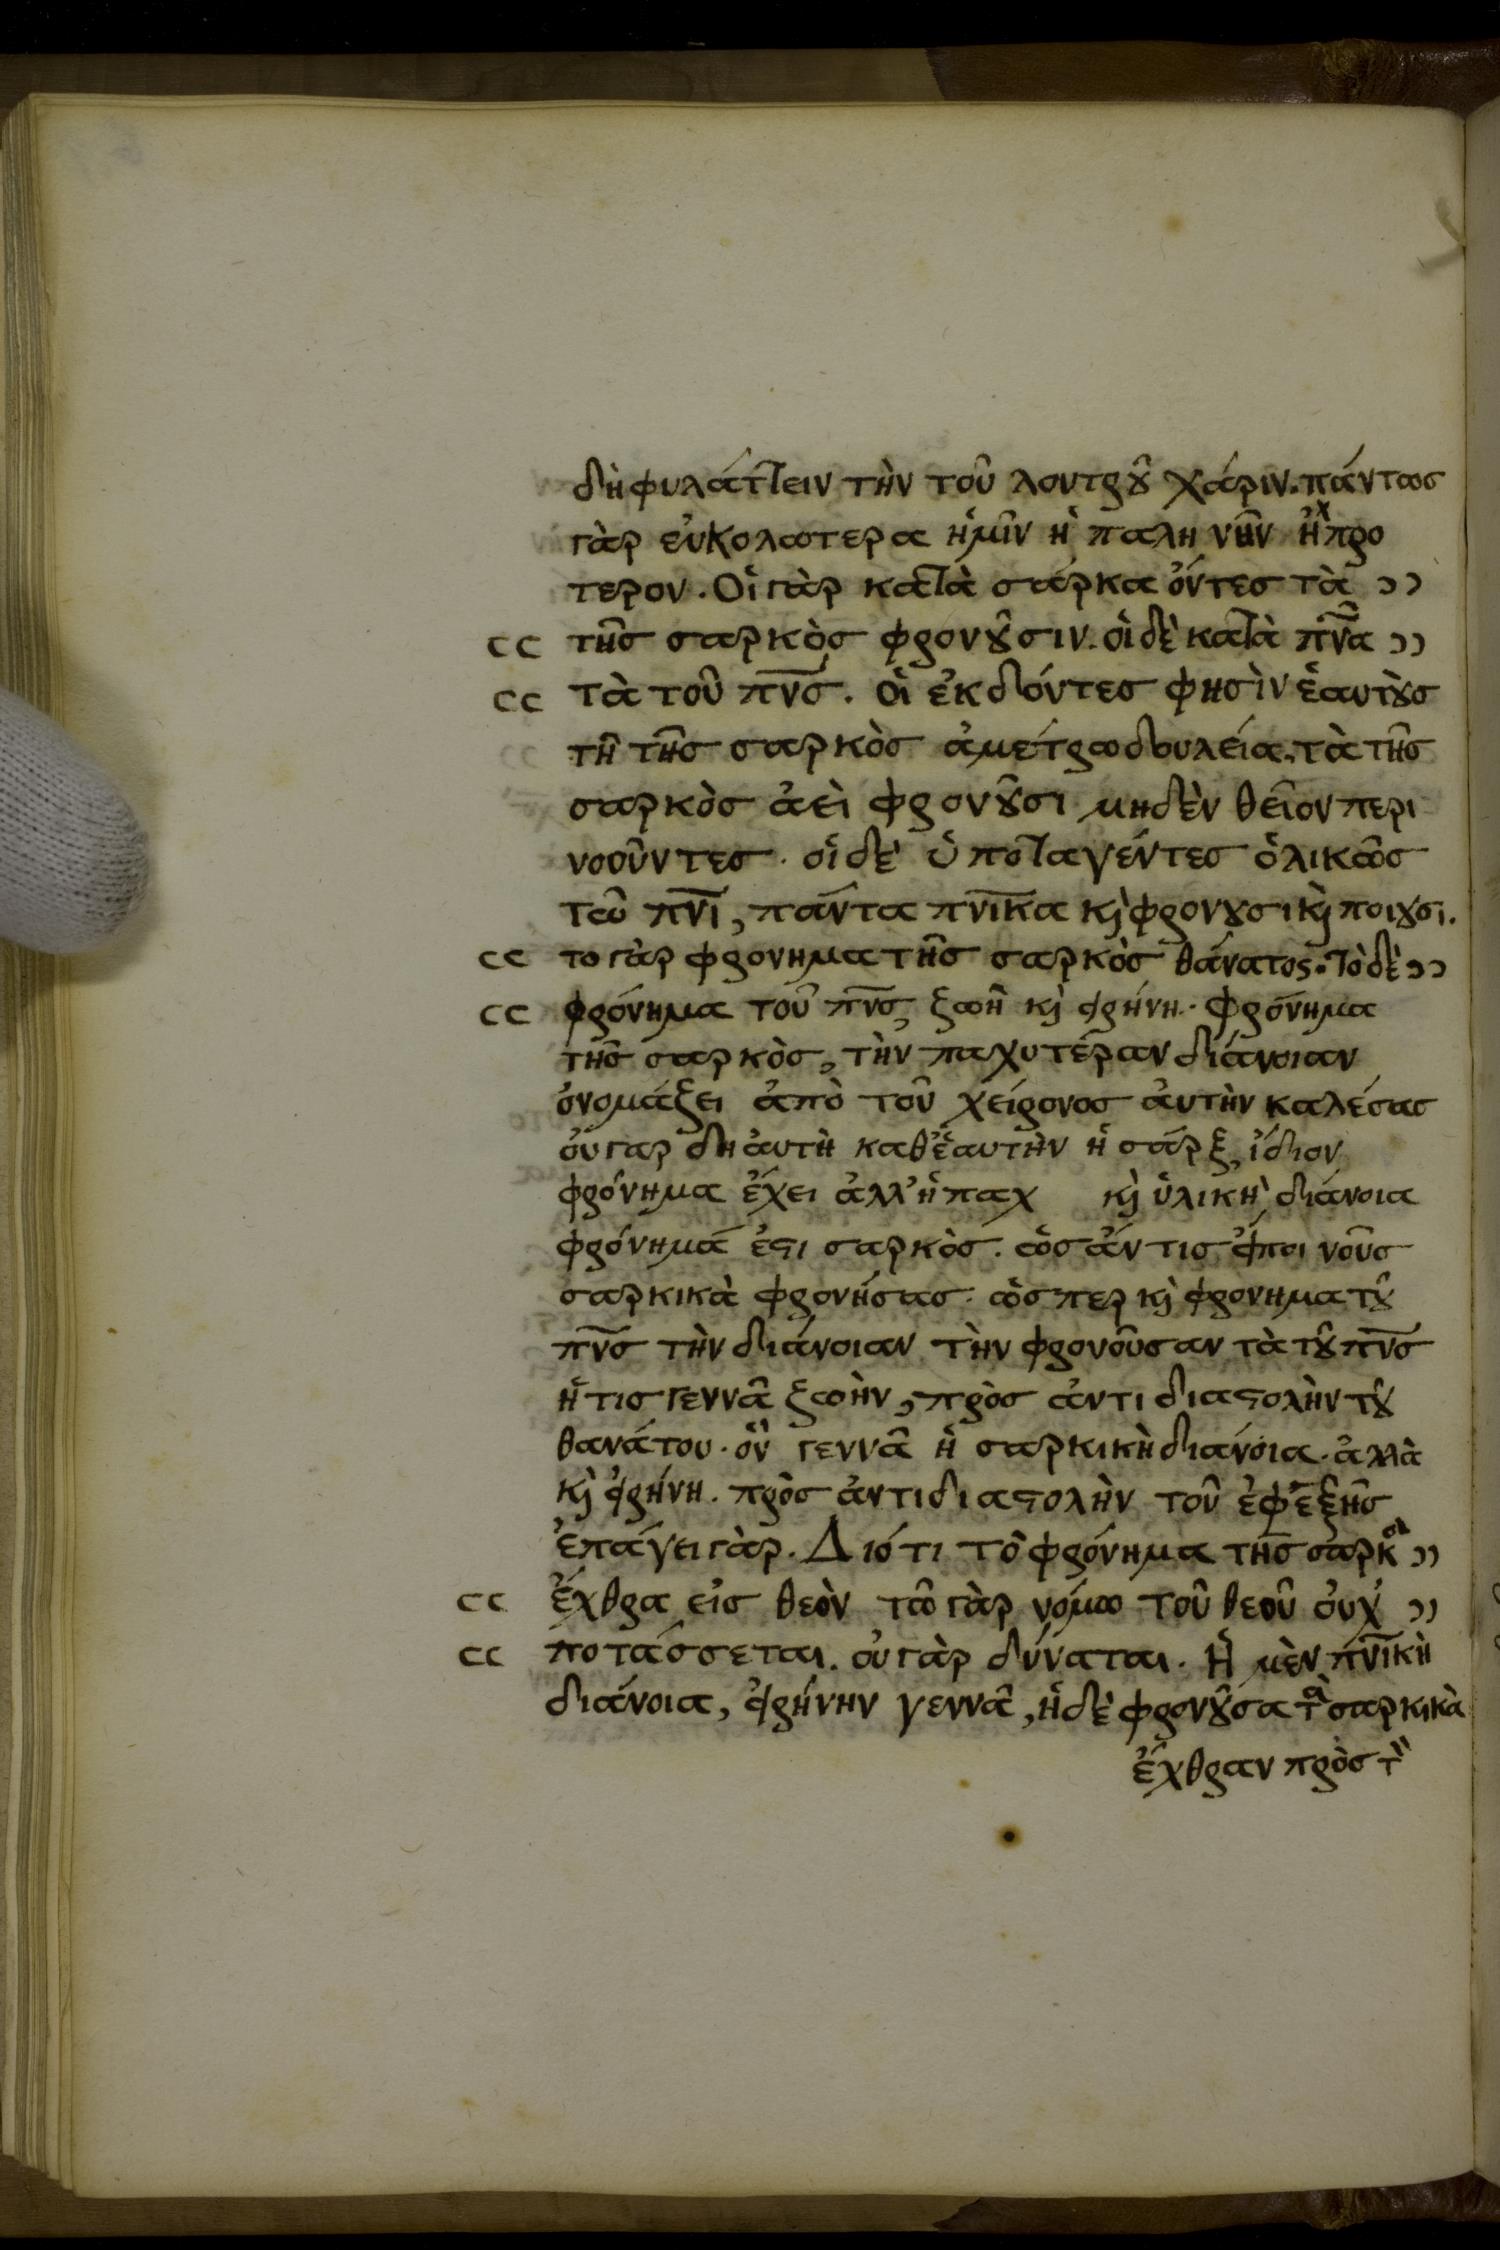 δὴ φυλάττειν τὴν τοῦ λουτροῦ χάριν. πάντως
γὰρ εὐκολωτερα ἡμῖν ἡ παλη νῦν ἢ προ
τερον. Οἱ γὰρ κατὰ σάρκα ὄντες τὰ ››
‹‹ τῆς σαρκὸς φρονοῦσιν. οἱ δὲ κατὰ πν̅α ››
‹‹ τὰ τοῦ πν̅ς. Οἱ ἐκδόντες φησὶν ἑαυτοὺς
τῆ τῆς σαρκὸς ἀμέτρω δουλεία, τὰ τῆς
σαρκὸς ἀεὶ φρονοῦσι μηδὲν θεῖον περι
νοοῦντες. οἱ δὲ ὑποταγέντες ὁλικῶς
τῶ πν̅ι, πάντα πν̅ικα κ̀ φρονουσι κ̀ ποιουσι.
‹‹ το γὰρ φρονημα τῆς σαρκὸς θάνατος. Τὸ δὲ ››
‹‹ φρόνημα τοῦ πν̅ς, ζωὴ κ̀ εἰρήνη. Φρόνημα
τῆς σαρκὸς, τὴν παχυτέραν διάνοιαν
ὀνομάζει ἀπὸ τοῦ χείρονος ἀυτὴν καλέσας
ὀυ γαρ δὴ ἀυτὴ καθ' ἑαυτὴν ἡ σάρξ, ἴδιον
φρόνημα ἔχει ἀλλ' ἡ παχ κ̀ ὑλικὴ διάνοια
φρόνημά ἐστι σαρκὸς. ὡς ἄν τις εἴποι νοῦς
σαρκικὰ φρονήσας. ὥσπερ κ̀ φρονημα τοῦ
πν̅ς τὴν διάνοιαν τὴν φρονοῦσαν τὰ τοῦ πν̅ς
ἥτις γεννᾶ ζωὴν, πρὸς ἀντιδιαστολὴν τοῦ
θανάτου. ὃν γεννᾶ ἡ σαρκικὴ διάνοια. ἀλλὰ
κ̀ εἰρήνη. πρὸς ἀντιδιαστολὴν τοῦ ἐφεξῆς
ἐπάγει γάρ. Διότι τὸ φρόνημα τῆς σαρκὸς ››
‹‹ ἔχθρα εἰς θεὸν τῶ γὰρ νόμω τοῦ θεοῦ ὀυχ' ››
‹‹ ποτάσσεται. ὀυ γὰρ δύναται. Ἡ μὲν πν̅ικὴ
διάνοια, εἰρήνην γεννᾶ, ἡ δὲ φρονοῦσα τὰ σαρκικὰ
ἔχθραν πρὸς τὸν